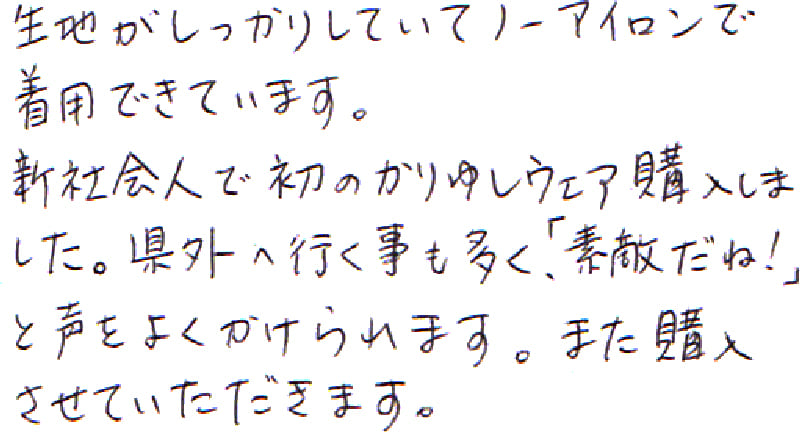 生地がしっかりしていてノーアイロンで
着用できています。
新社会人で初のかりゆしウェア購入しま
した。県外へ行く事も多く、「素敵だね!」
と声をよくかけられます。また購入
させていただきます。